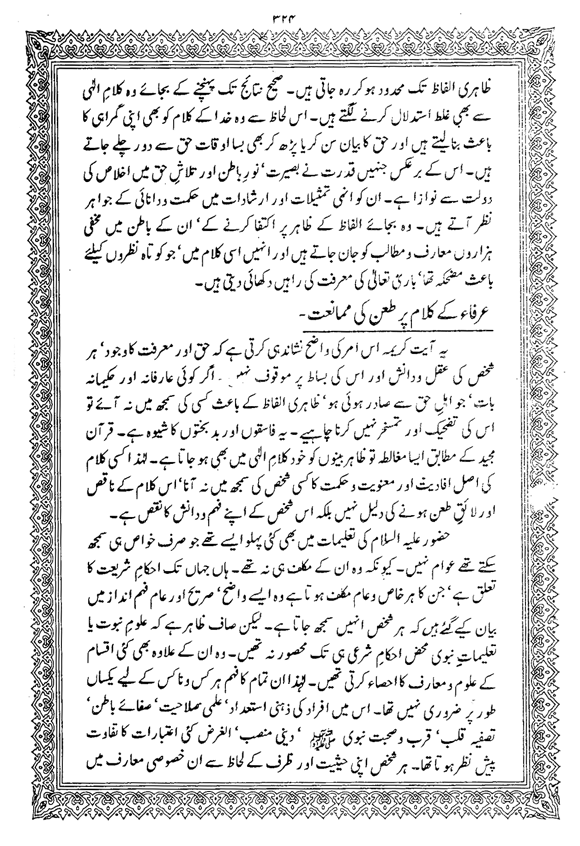 ۳۲۴
ظاہری الفاظ تک محدود ہو کر رہ جاتی ہیں۔ صحیح نتائج تک پہنچنے کے بجائے وہ کلام الٰہی
سے بھی غلط استدلال کرنے لگتے ہیں۔ اس لحاظ سے وہ خدا کے کلام کو بھی اپنی گمراہی کا
باعث بنا لیتے ہیں اور حق کا بیان سن کر یا پڑھ کر بھی بسا اوقات حق سے دور چلے جاتے
ہیں۔ اس کے برعکس جنہیں قدرت نے بصیرت‘ نور باطن اور تلاش حق میں اخلاص کی
دولت سے نوازا ہے۔ ان کو انھی تمثیلات اور ارشادات میں حکمت و دانائی کے جواہر
نظر آتے ہیں۔ وہ بجائے الفاظ کے ظاہر پر اکتفا کرنے کے‘ ان کے باطن میں مخفی
ہزاروں معارف و مطالب کو جان جاتے ہیں اور انہیں اسی کلام میں‘ جو کوتاہ نظروں کیلئے
باعث مضحکہ تھا‘ باری تعالیٰ کی معرفت کی راہیں دکھائی دیتی ہیں۔
عرفاء کے کلام پر طعن کی ممانعت۔
یہ آیت کریمہ اس امر کی واضح نشاندہی کرتی ہے کہ حق اور معرفت کا وجود‘ ہر
شخص کی عقل و دانش اور اس کی بساط پر موقوف نہیں۔ اگر کوئی عارفانہ اور حکیمانہ
بات‘ جو اہل حق سے صادر ہوئی ہو‘ ظاہری الفاظ کے باعث کسی کی سمجھ میں نہ آئے تو
اس کی تضحیک اور تمسخر نہیں کرنا چاہیے۔ یہ فاسقوں اور بد بختوں کا شیوہ ہے۔ قرآن
مجید کے مطابق ایسا مغالطہ تو ظاہر بینوں کو خود کلام الٰہی میں بھی ہو جاتا ہے۔ لہٰذا کسی کلام
کی اصل افادیت اور معنویت و حکمت کا کسی شخص کی سمجھ میں نہ آنا‘ اس کلام کے ناقص
اور لائق طعن ہونے کی دلیل نہیں بلکہ اس شخص کے اپنے فہم و دانش کا نقص ہے۔
حضور علیہ السلام کی تعلیمات میں بھی کئی پہلو ایسے تھے جو صرف خواص ہی سمجھ
سکتے تھے عوام نہیں۔ کیونکہ وہ ان کے مکلف ہی نہ تھے۔ ہاں جہاں تک احکام شریعت کا
تعلق ہے‘ جن کا ہر خاص و عام مکلف ہوتا ہے وہ ایسے واضح‘ صریح اور عام فہم انداز میں
بیان کیے گئے ہیں کہ ہر شخص انہیں سمجھ جاتا ہے۔ لیکن صاف ظاہر ہے کہ علوم نبوت یا
تعلیمات نبوی محض احکام شرعی ہی تک محصور نہ تھیں۔ وہ ان کے علاوہ بھی کئی اقسام
کے علوم و معارف کا احصاء کرتی تھیں۔ لہٰذا ان تمام کا فہم ہر کس و ناکس کے لیے یکساں
طور پر ضروری نہیں تھا۔ اس میں افراد کی ذہنی استعداد‘ علمی صلاحیت‘ صفائے باطن‘
تصفیہ قلب‘ قرب و صحبت نبوی ﷺ‘ دینی منصب‘ الغرض کئی اعتبارات کا تفاوت
پیش نظر ہوتا تھا۔ ہر شخص اپنی حیثیت اور ظرف کے لحاظ سے ان خصوصی معارف میں